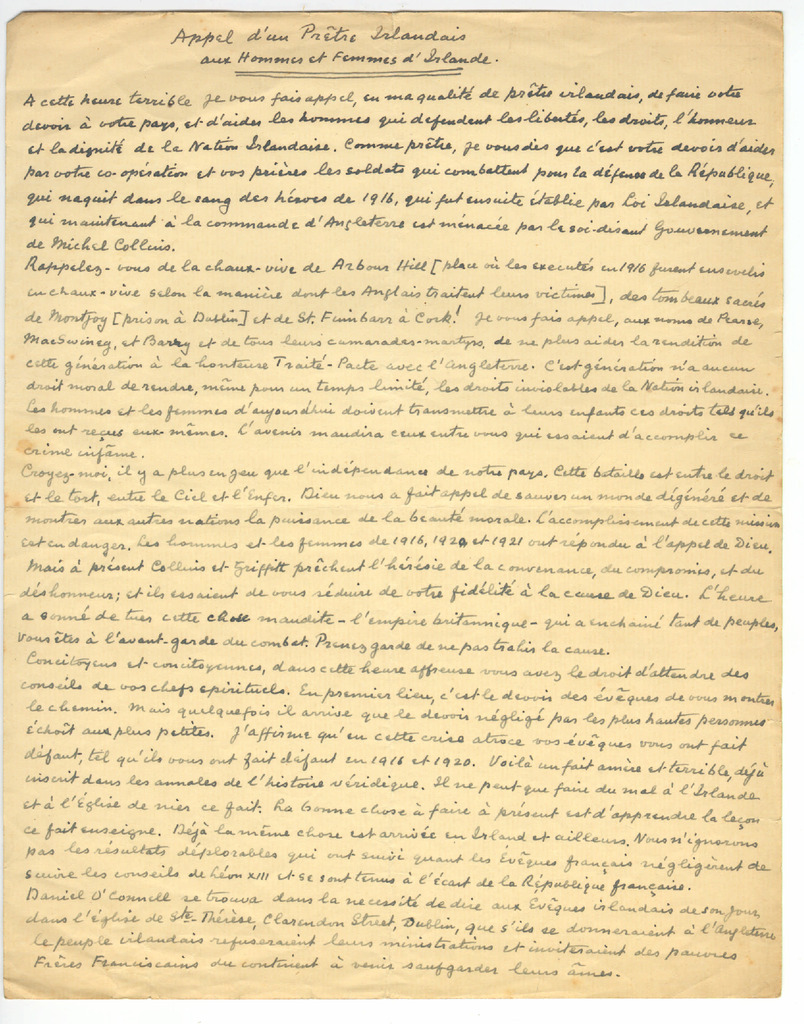 Appel d'un Prêtre Irlandais
aux Hommes et Femmes d'Irlande.
A cette heure terrible je vous fais appel, en ma qualité de prêtre irlandais, de faire votre
devoir à votre pays, et d'aider les hommes qui defendent les libertés, les droits, l'honneur
et la dignité de la Nation Irlandaise. Comme prêtre, je vous dis que c'est votre devoir d'aider
par votre co-opération et vos prières les soldats qui combattent pour la défense de la République,
qui naquit dans le sang des héros de 1916, qui fut ensuite établie par Loi Irlandaise, et
qui maintenant à la commande d'Angleterre est ménacée par le soi-disant Gouvernement
de Michel Collins.
Rappelez-vous de la chaux-vive de Arbour Hill [place où les executés en 1916 furent ensevelis
en chaux-vive selon la manière dont les Anglais traitent leurs victimes], des tombeaux sacrés
de Montjoy [prison à Dublin] et de St. Fuinbarr à Cork! Je vous fais appel, aux noms de Pearse,
MacSwiney, et Barry et de tous leurs camarades-martyrs, de ne plus aider la rendition de
cette génération à la honteuse Traité-Pacte avec l'Angleterre. C'est génération n'a aucun
droit moral de rendre, même pour un temps limité, les droits inviolables de la Nation irlandaise.
Les hommes et les femmes d'aujourdhui doivent transmettre à leurs enfants ces droits tels qu'ils
les ont reçus eux-mêmes. L'avenir maudira ceux entre vous qui essaient d'accomplir ce
crime infâme.
Croyez-moi, il y a plus en jeu que l'indépendance de notre pays. Cette bataille est entre le droit
et le tort, entre le Ciel et l'Enfer. Dieu nous a fait appel de sauver un monde dégénéré et de
montrer aux autres nations la puissance de la beauté morale. L'accomplissement de cette mission
est en danger. Les hommes et les femmes de 1916, 1920 et 1921 ont répondu à l'appel de Dieu.
Mais à présent Collins et Griffith prêchent l'hérésie de la convenance, du compromis, et du
déshonneur; et ils essaient de vous séduire de votre fidélité à la cause de Dieu. L'heure
a sonné de tuer cette chose maudite - l'empire britannique - qui a enchainé tant de peuples,
vous êtes à l'avant-garde du combat. Prenez garde de ne pas trahir la cause.
Concitoyens et concitoyennes, dans cette heure affreuse vous avez le droit d'attendre des
conseils de vos chefs spirituels. En premier lieu, c'est le devoir des évêques de vous montrer
le chemin. Mais quelquefois il arrive que le devoir négligé par les plus hautes personnes
échoît aux plus petites. J'affirme qu'en cette crise atroce vos évêques vous ont fait
défaut, tel qu'ils vous ont fait défaut en 1916 et 1920. Voilà un fait amère et terrible, déjà
inscrit dans les annales de l'histoire véridique. Il ne peut que faire du mal à l'Irlande
et à l'Église de nier ce fait. La bonne chose à faire à présent est d'apprendre la leçon
ce fait enseigne. Déjà la même chose est arrivée en Irland et ailleurs. Nous n'ignorons
pas les résultats déplorables qui ont suivi quant les Évêques français négligèrent de
suivre les conseils de Léon XIII et se sont tenus à l'écart de la République française.
Daniel O'Connell se trouva dans la necessité de dire aux Evêques irlandais de son jour,
dans l'église de Ste-Thérèse, Clarendon Street, Dublin, que s'ils se donneraient à l'Angleterre
le peuple irlandais refuseraient leurs ministrations et inviteraient des pauvres
Frères Franciscains du continent à venir saufgarder leurs âmes.